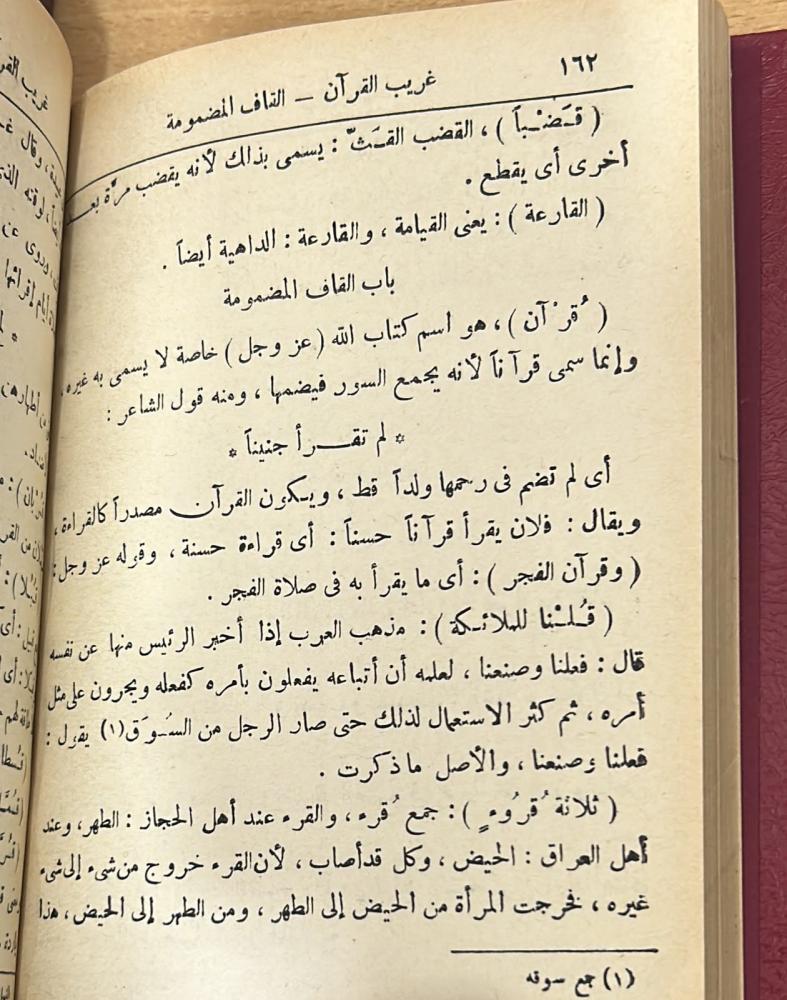 ١٦٢
غريب القرآن — القاف المضمومة
( قَضْباً ) ، القضب القَثّ : يسمى بذالك لأنه يقضب مرّة بعـ
أخرى أى يقطع .
( القارعة ) : يعنى القيامة ، والقارعة : الداهية أيضاً .
باب القاف المضمومة
( قُرْآن ) ، هو اسم كتاب الله ( عز وجل ) خاصة لا يسمى به غيره ،
وإنما سمى قرآناً لأنه يجمع السور فيضمها ، ومنه قول الشاعر :
* لم تقـــرأ جنيناً *
أى لم تضم فى رحمها ولداً قط ، ويكون القرآن مصدراً كالقراءة ،
ويقال : فلان يقرأ قرآناً حسناً : أى قراءة حسنة ، وقوله عز وجل :
( وقرآن الفجر ) : أى ما يقرأ به فى صلاة الفجر .
( قُلْنا للملائكة ) : مذهب العرب إذا أخبر الرئيس منها عن نفسه
قال : فعلنا وصنعنا ، لعلمه أن أتباعه يفعلون بأمره كفعله ويجرون على مثل
أمره ، ثم كثر الاستعمال لذلك حتى صار الرجل من السُوَق(١) يقول :
فعلنا وصنعنا ، والأصل ما ذكرت .
( ثلاثة قُرُوءٍ ) : جمع قُرء ، والقرء عند أهل الحجاز : الطهر ، وعند
أهل العراق : الحيض ، وكل قد أصاب ، لأن القرء خروج من شىء إلى شىء
غيره ، فخرجت المرأة من الحيض إلى الطهر ، ومن الطهر إلى الحيض ، هذا
(١) جمع سوقه